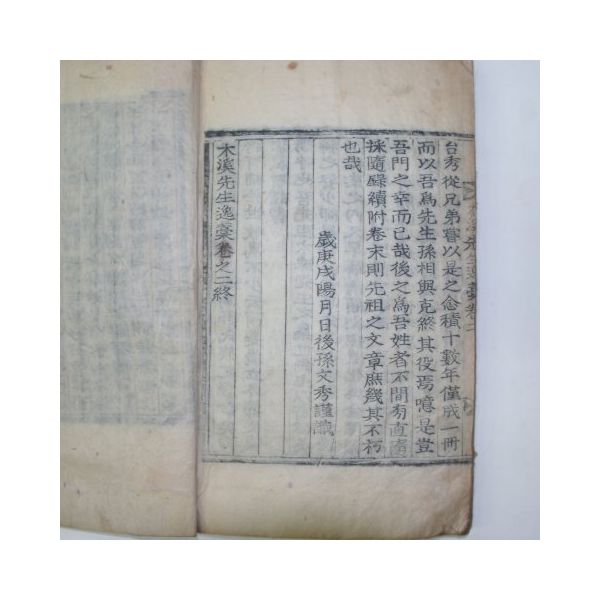 台秀從兄弟嘗以是之念積十數年僅成一冊
而以吾爲先生孫相與克終其役焉噫是豈
吾門之幸而已哉後之爲吾姓者不間旁直廣
採隨錄續附卷末則先祖之文章庶幾其不朽
也哉
歲庚戌陽月日後孫文秀謹識
木溪先生逸藁卷之二終